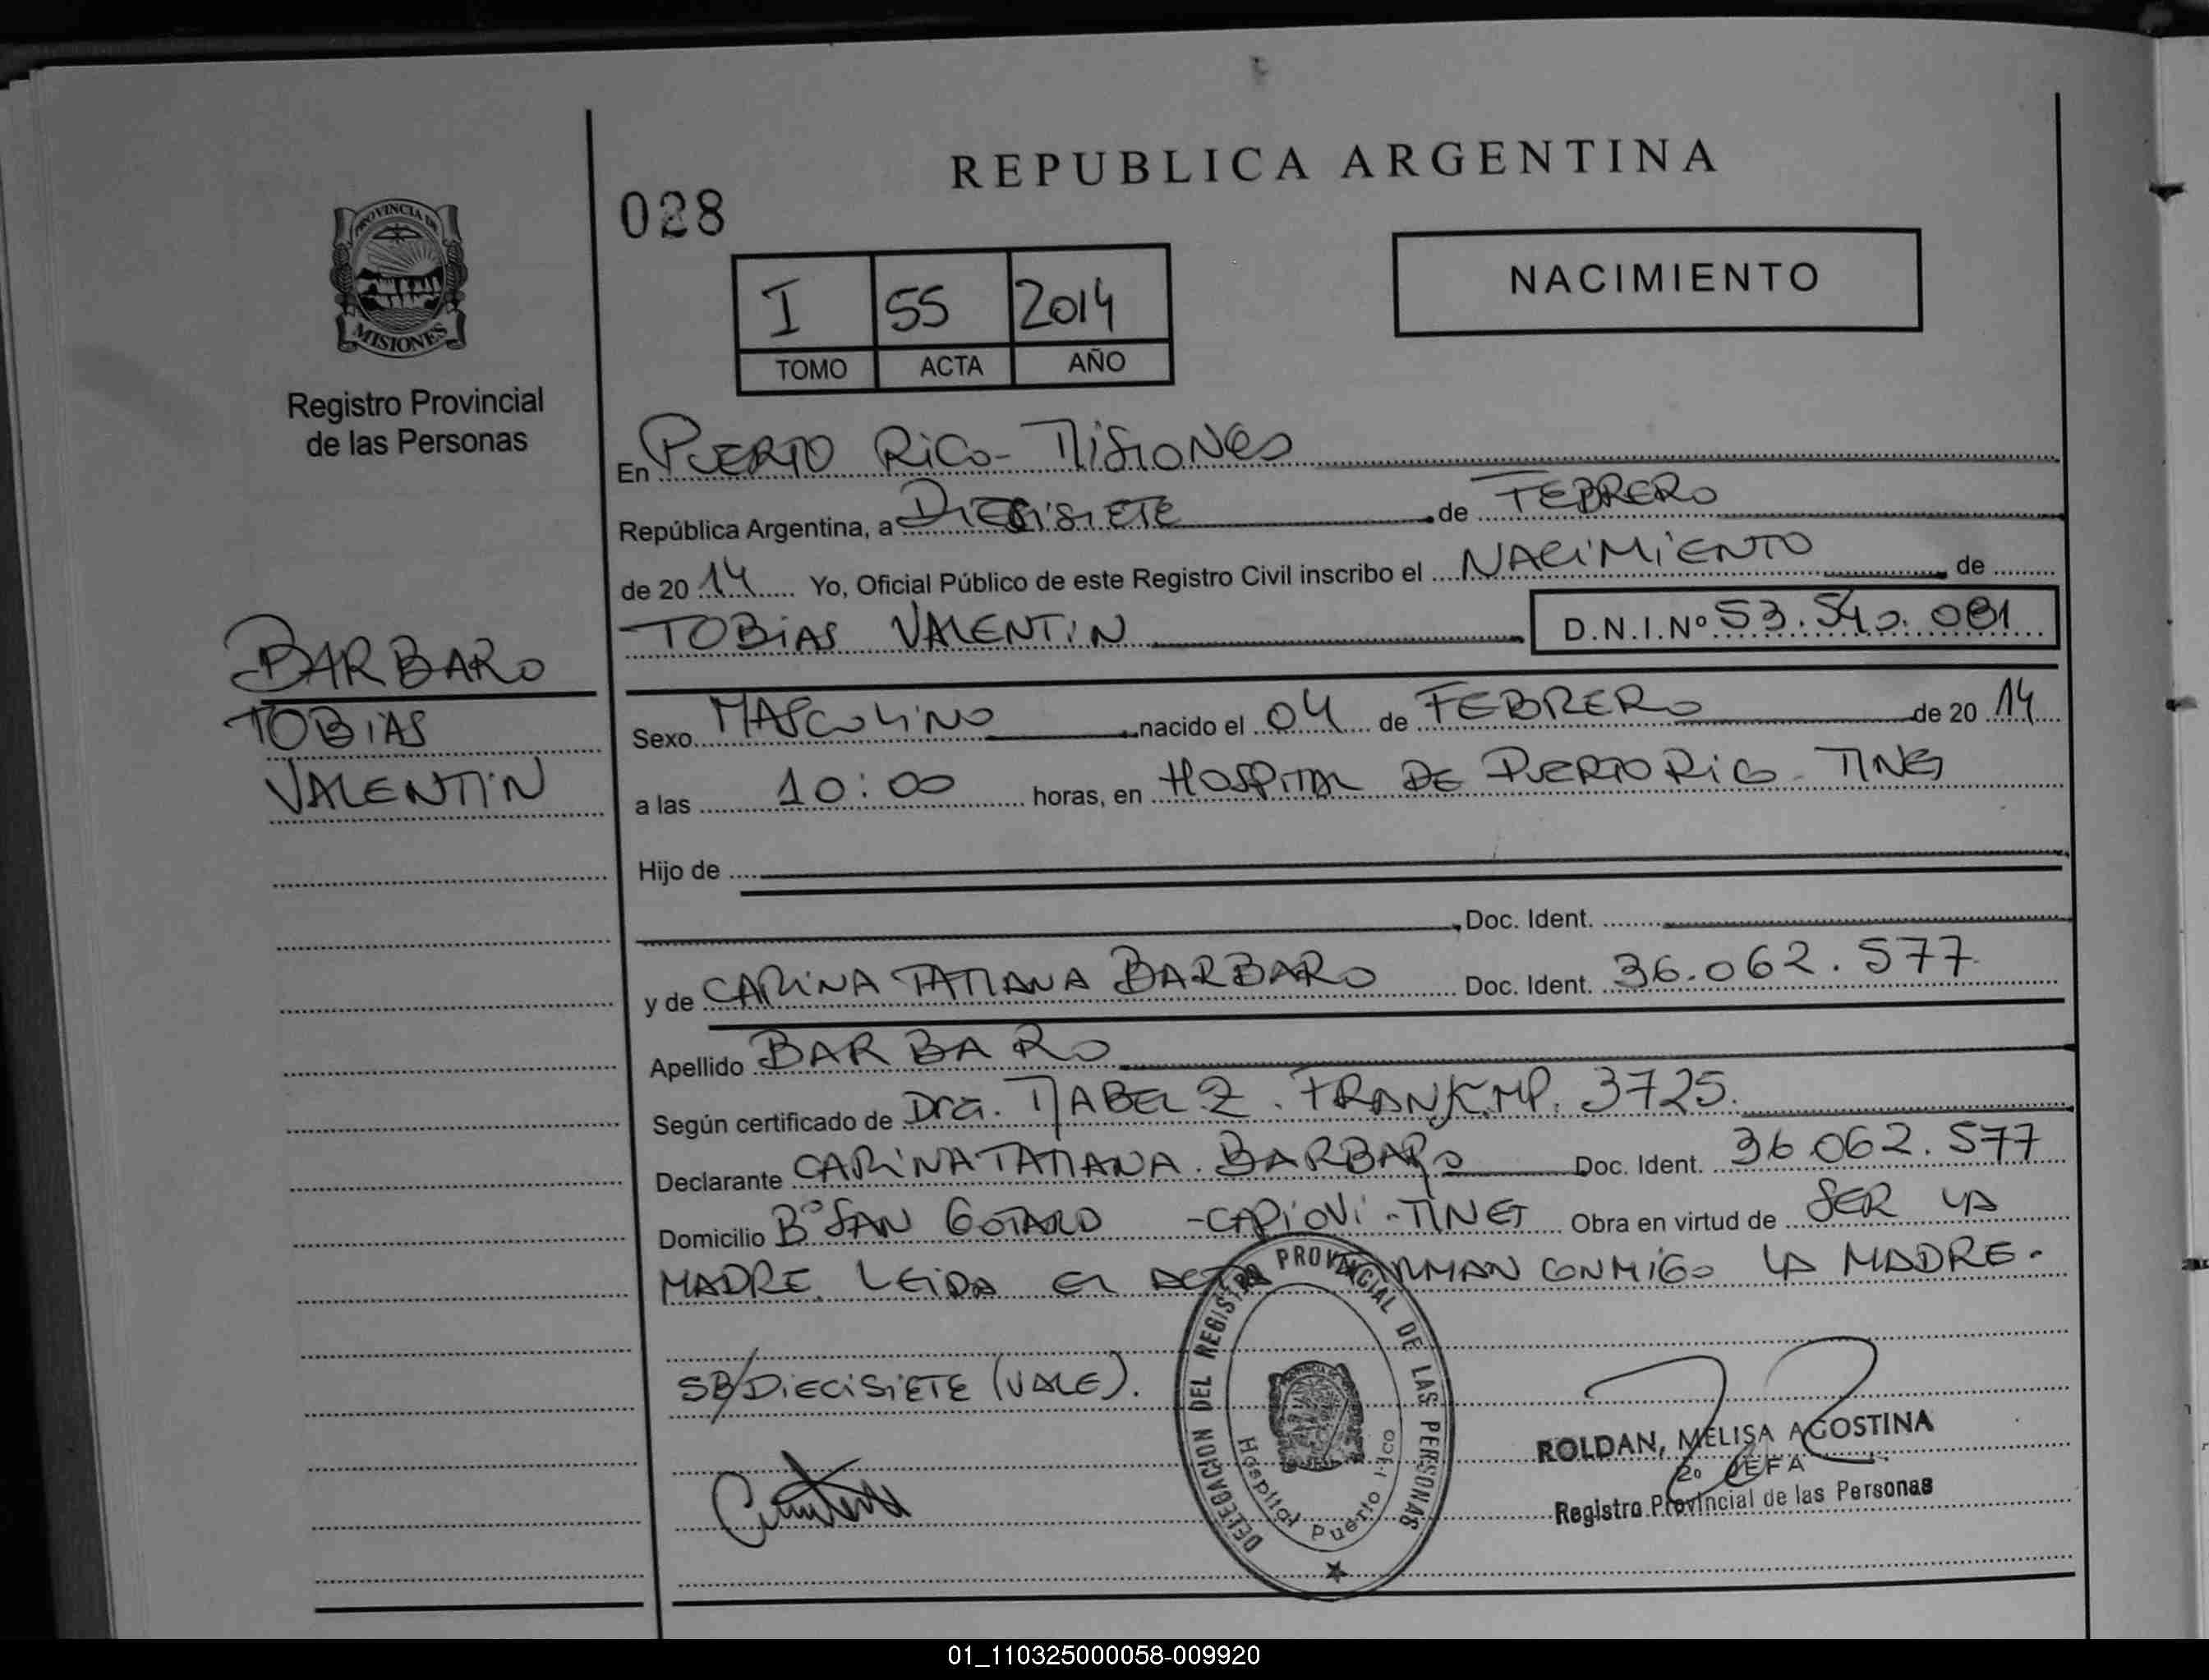 REPUBLICA ARGENTINA
028
PROVINCIA DE
MISIONES
Registro Provincial
de las Personas
I 55 2014
TOMO ACTA AÑO
NACIMIENTO
En PUERTO RICO - MISIONES
República Argentina, a DIECISIETE de FEBRERO
de 2014 Yo, Oficial Público de este Registro Civil inscribo el NACIMIENTO de
TOBIAS VALENTIN D.N.I.Nº 53.540.081
BARBARO
TOBIAS
VALENTIN
Sexo MASCULINO nacido el 04 de FEBRERO de 2014
a las 10:00 horas, en HOSPITAL DE PUERTO RICO - MNES
Hijo de
Doc. Ident.
y de CARINA TATIANA BARBARO Doc. Ident. 36.062.577
Apellido BARBARO
Según certificado de Dra. MABEL Z. FRANK MP. 3725.
Declarante CARINA TATIANA BARBARO Doc. Ident. 36.062.577
Domicilio Bº SAN GOTARDO - CAPIOVI - MNES Obra en virtud de SER LA
MADRE. LEIDA EL ACTA FIRMAN CONMIGO LA MADRE.
SB/DIECISIETE (VALE).
DELEGACION DEL REGISTRO PROVINCIAL DE LAS PERSONAS
Hospital Puerto Rico
ROLDAN, MELISA AGOSTINA
2º JEFA
Registro Provincial de las Personas
01_110325000058-009920